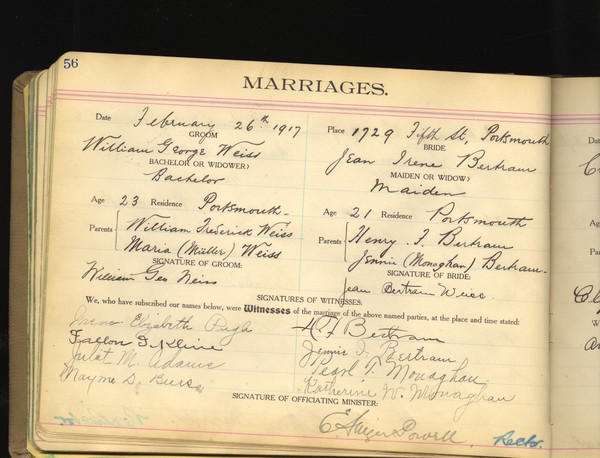 56
MARRIAGES.
Date February 26th 1917 Place 1729 Fifth St, Portsmouth
GROOM BRIDE
William George Weiss Jean Irene Bertram
BACHELOR OR WIDOWER? MAIDEN OR WIDOW?
Bachelor Maiden
Age 23 Residence Portsmouth Age 21 Residence Portsmouth
Parents William Frederick Weiss Parents Henry F. Bertram
Maria (Müller) Weiss Jennie (Monaghan) Bertram
SIGNATURE OF GROOM: SIGNATURE OF BRIDE:
William Geo Weiss Jean Bertram Weiss.
SIGNATURES OF WITNESSES:
We, who have subscribed our names below, were Witnesses of the marriage of the above named parties, at the place and time stated:
Irene Elizabeth Pugh H F Bertram
Fallon I. Kline Jennie F. Bertram
Juliet M. Adams Pearl T. Monaghan
Mayme D. Katherine W. Monaghan
SIGNATURE OF OFFICIATING MINISTER:
E Powell, Rector